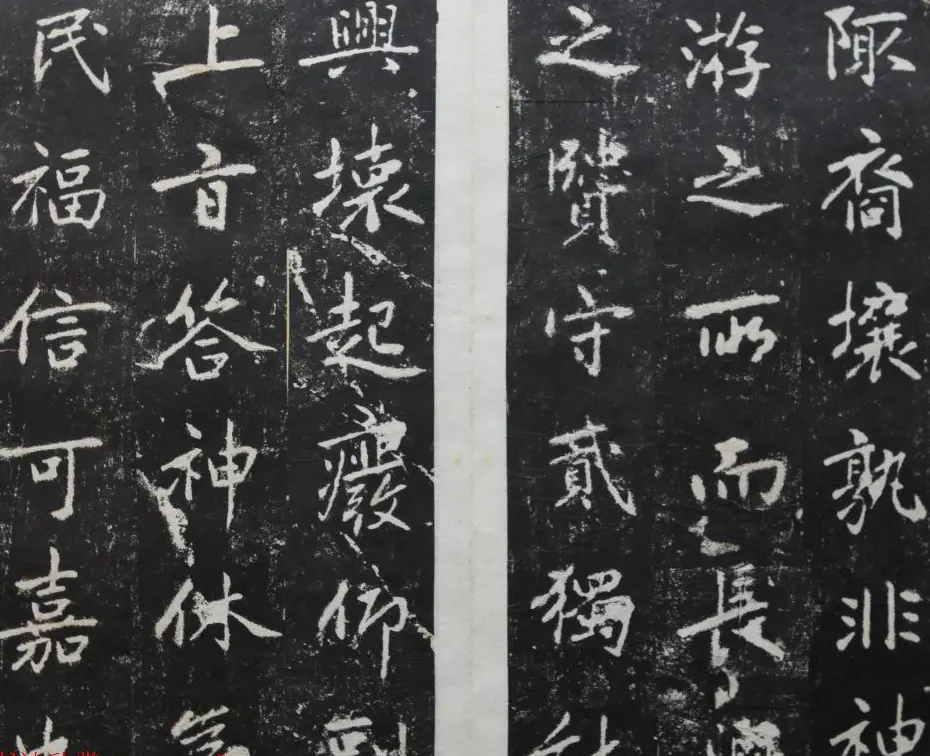 陬裔壤孰非神
游之所而長
之賢守貳獨
興壞起癈仰副
上旨答神休
民福信可嘉